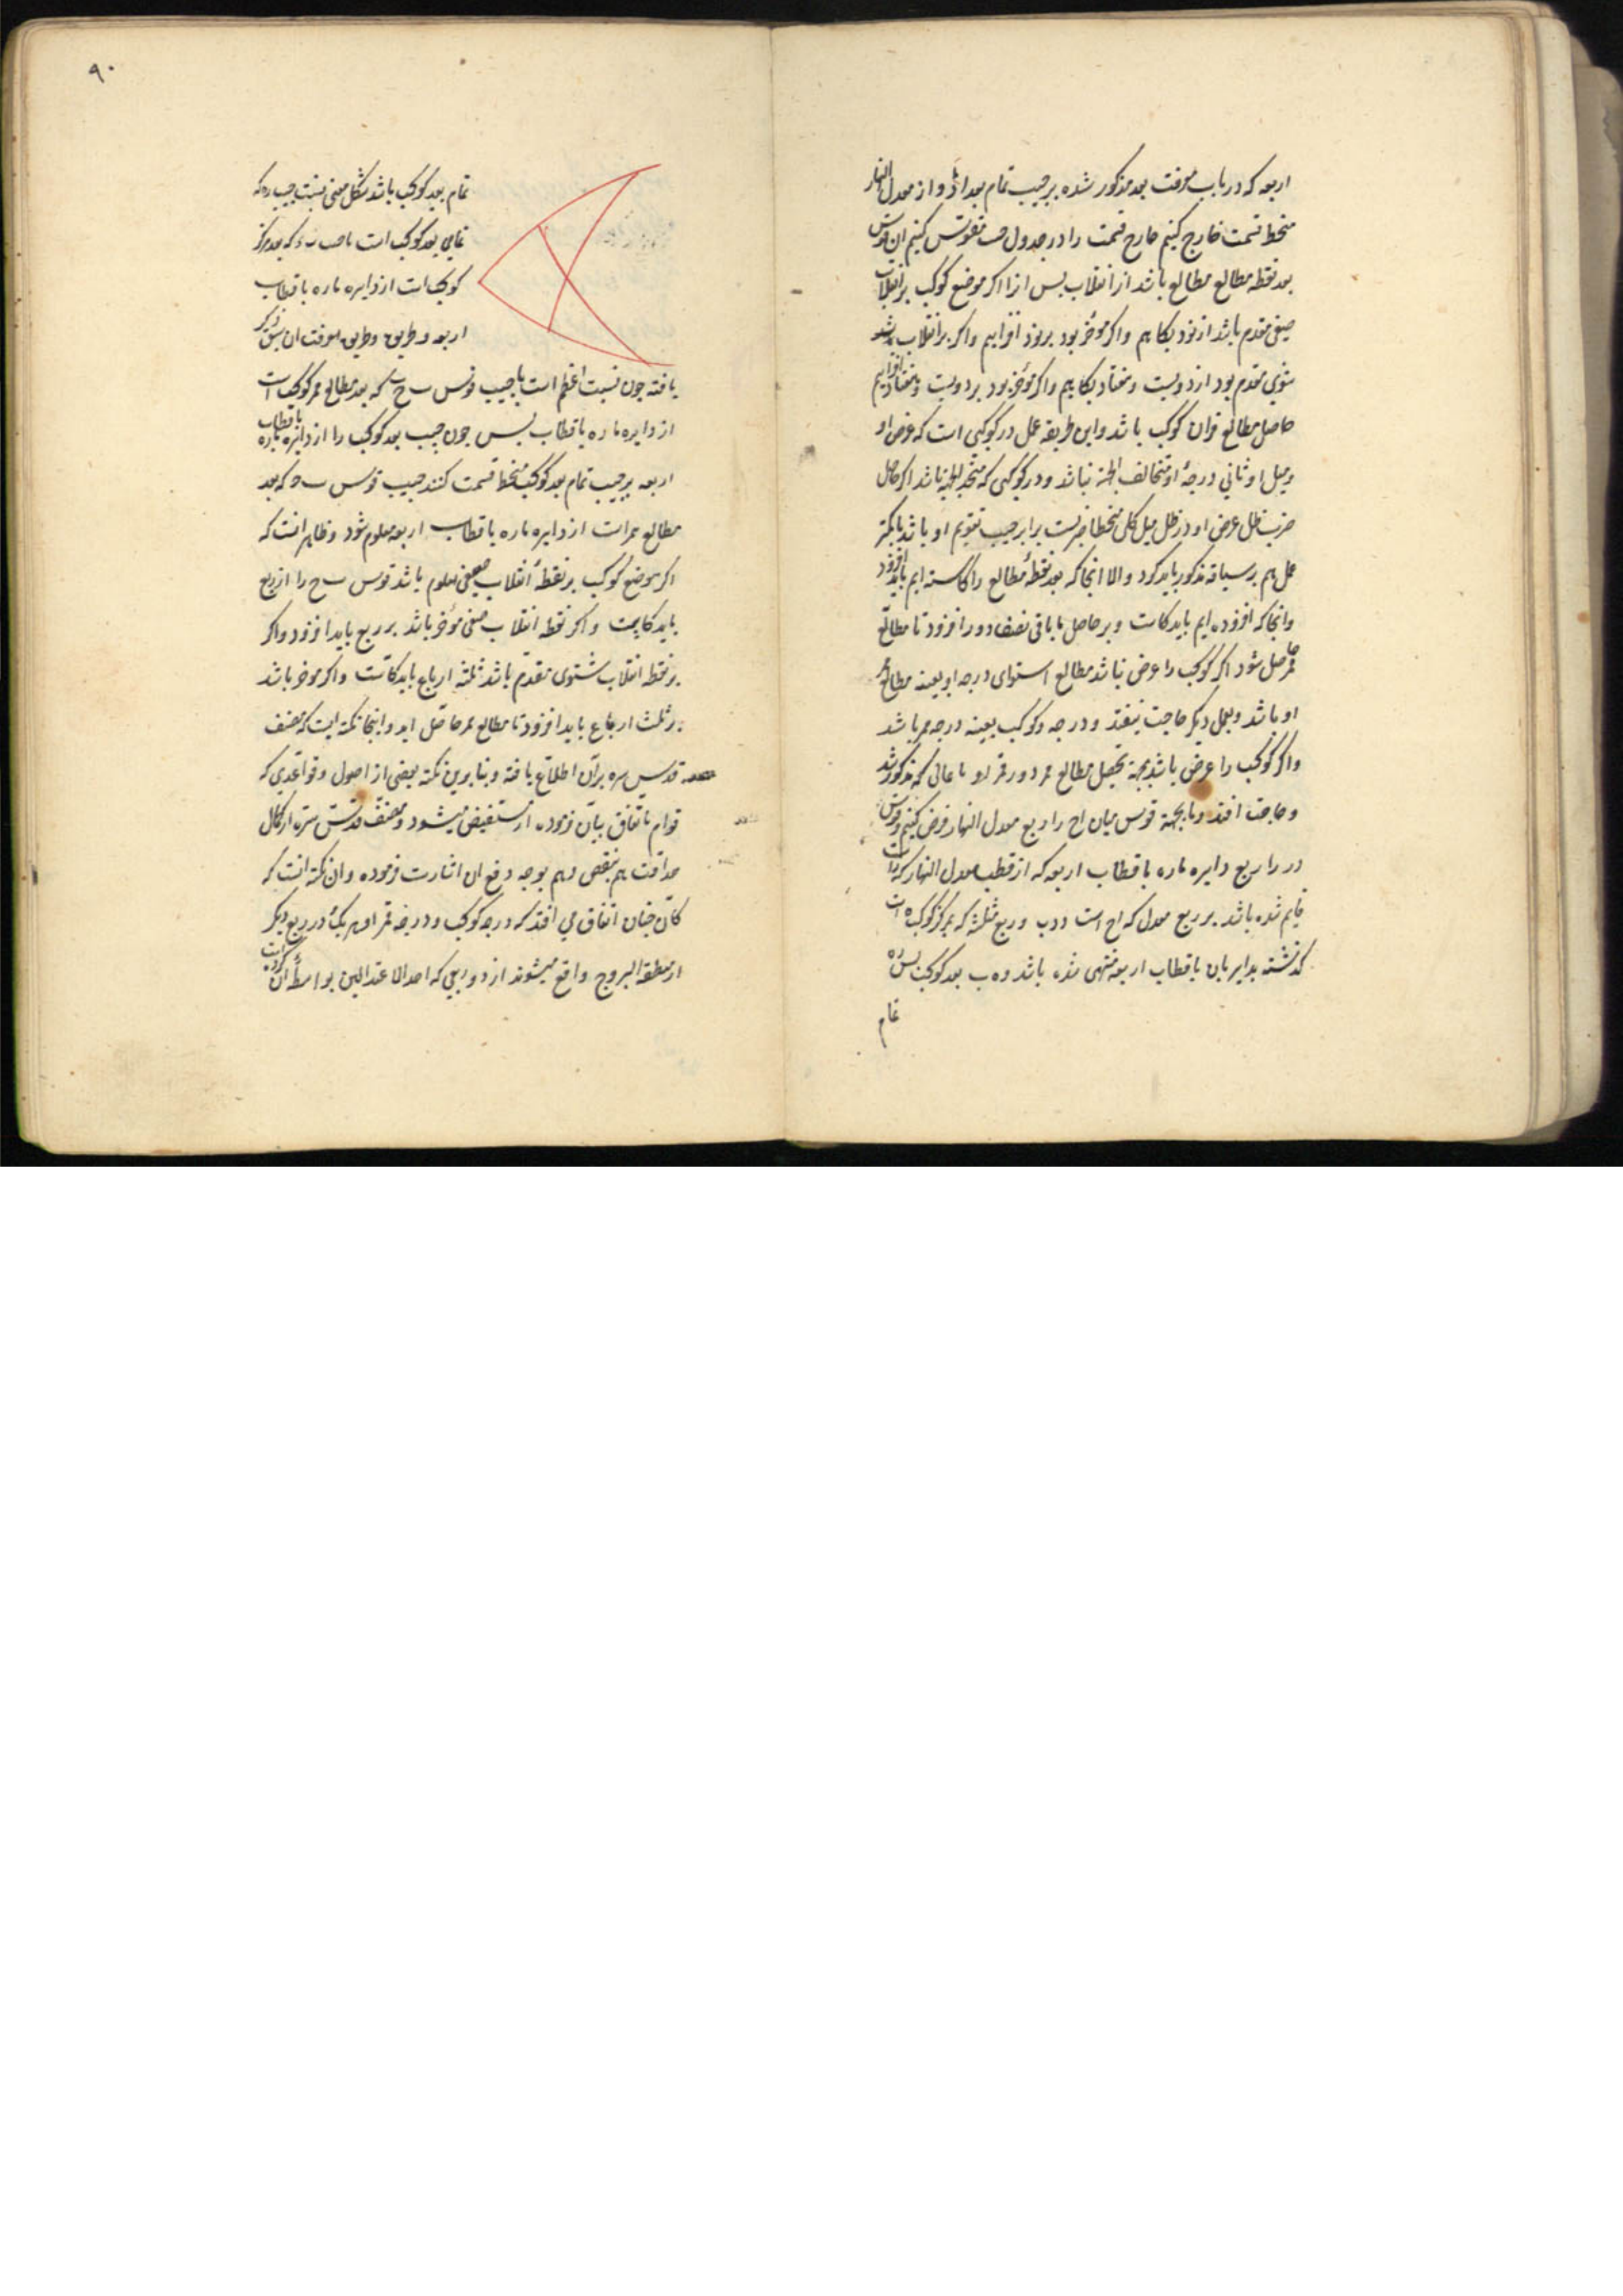 اربعه که در باب معرفت بعد مذکور شده بر جیب تمام بعد او از معدل النهار
منحط قسمت خارج کنیم خارج قسمت را در جدول جیب مقوس کنیم ان قوس
بعد نقطه مطالع مطالع باشد از انقلاب پس از ان اکر موضع کوکب بر انقلاب
صیفی مقدم باشد از نود بکاهیم و اکر مؤخر بود بر نود افزاییم و اکر بر انقلاب
شتوی مقدم بود از دویست و هفتاد بکاهیم و اکر مؤخر بود بر دویست و هفتاد افزاییم
حاصل مطالع ممر ان کوکب باشد و این طریقه عمل در کوکبی است که عرض او
و میل او ثانی درجهٔ او متخالف الجهة نباشد و در کوکبی که متحد الجهة باشد اکر حاصل
ضرب ظل عرض او در ظل میل کلی منحطا برابر جیب تقویم او باشد یا کمتر
عمل هم بر سیاقه مذکور باید کرد و الا انجا که بعد نقطهٔ مطالع را کاسته ایم باید افزود
و انجا که افزوده ایم باید کاست و بر حاصل یا باقی نصف دور افزود تا مطالع
ممر حاصل شود اکر کوکب را عرض نباشد مطالع استوای درجه او بعینه مطالع ممر
او باشد و بعمل دیکر حاجت نیفتد و درجه کوکب بعینه درجه ممر باشد
و اکر کوکب را عرض باشد بجهة تحصیل مطالع ممر و درجه ممر او باعمالی که مذکور شد
و حاجت افتد و ما بجهة قوس میان اح را ربع معدل النهار فرض کنیم و قوس
در را ربع دایره ماره باقطاب اربعه که از قطب معدل النهار که راست
قایم شده باشد بر ربع معدل که اح است و د ب و ربع مثلثه که بمرکز کوکب ه است
کذشته بدایره بان باقطاب اربعه منتهی شده باشد و ه ب بعد کوکب پس ره
تمام
۹۰
تمام بعد کوکب باشد بشکل مغنی نسبت جیب ره که
تمام بعد کوکب است با جیب که بعد مرکز
کوکب است از دایره ماره باقطاب
اربعه و طریق معرفت ان سبق ذکر
یافته چون نسبت اعظم است با جیب قوس ب ح که بعد مطالع ممر کوکب است
از دایره ماره باقطاب پس چون جیب بعد کوکب را از دایره ماره باقطاب
اربعه بر جیب تمام بعد کوکب منحط قسمت کنند جیب قوس ب ح که بعد
مطالع ممر است از دایره ماره باقطاب اربعه معلوم شود و ظاهر انست که
اکر موضع کوکب بر نقطهٔ انقلاب صیفی معلوم باشد قوس ب ح را از ربع
باید کاست و اکر نقطه انقلاب صیفی مؤخر باشد بر ربع باید افزود و اکر
بر نقطه انقلاب شتوی مقدم باشد ثلثه ارباع باید کاست و اکر موخر باشد
بر ثلث ارباع باید افزود تا مطالع ممر حاصل اید و اینجا نکته ایست که مصنف
قدس سره بر آن اطلاع یافته و بنا برین نکته بعضی از اصول و قواعدی که
قوام باتفاق بیان فرموده از مستفیض میشود و مصنف قدس سره از کمال
حذاقت هم بنقض و هم بوجه دفع ان اشارت فرموده و ان نکته انست که
کاه چنان اتفاق می افتد که درجه کوکب و درجه ممر او هر یک در ربع دیکر
از منطقة البروج واقع میشوند از دو ربعی که احد الاعتدالین بواسطهٔ ان کردیده است